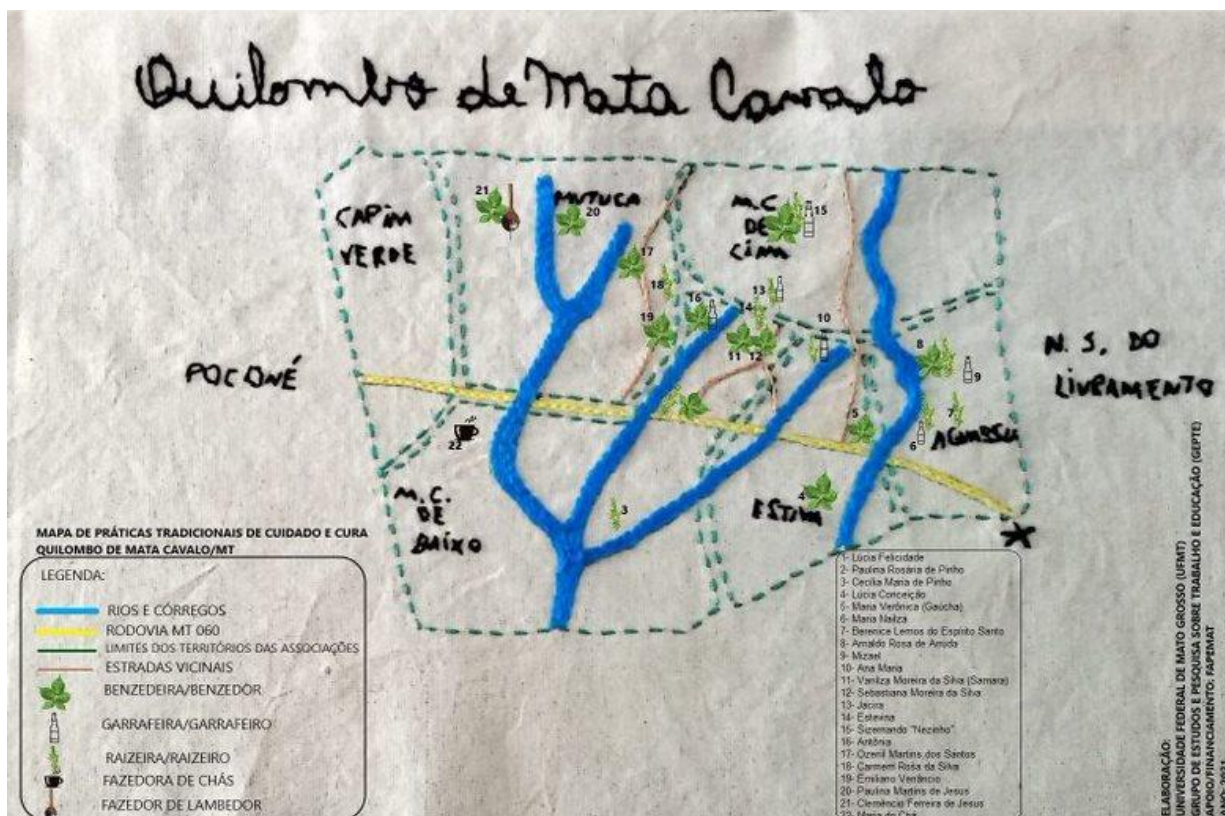 Quilombo de Mata Cavalo
CAPIM
VERDE
21
MUTUCA
20
M.C
DE
CIMA
15
17
18
13
16
14
19
10
11
12
8
9
POCONÉ
N. S. DO
LIVRAMENTO
22
5
7
6
AGUASSU
4
ESTIVA
3
M.C.
DE
BAIXO
MAPA DE PRÁTICAS TRADICIONAIS DE CUIDADO E CURA
QUILOMBO DE MATA CAVALO/MT
LEGENDA:
RIOS E CÓRREGOS
RODOVIA MT 060
LIMITES DOS TERRITÓRIOS DAS ASSOCIAÇÕES
ESTRADAS VICINAIS
BENZEDEIRA/BENZEDOR
GARRAFEIRA/GARRAFEIRO
RAIZEIRA/RAIZEIRO
FAZEDORA DE CHÁS
FAZEDOR DE LAMBEDOR
1- Lúcia Felicidade
2- Paulina Rosária de Pinho
3- Cecília Maria de Pinho
4- Lúcia Conceição
5- Maria Verônica (Gaúcha)
6- Maria Nailza
7- Berenice Lemos do Espírito Santo
8- Arnaldo Rosa de Arruda
9- Mizael
10- Ana Maria
11- Vanilza Moreira da Silva (Samara)
12- Sebastiana Moreira da Silva
13- Jacira
14- Estevina
15- Sizernando "Nezinho"
16- Antônia
17- Ozenil Martins dos Santos
18- Carmem Rosa da Silva
19- Emiliano Venâncio
20- Paulina Martins de Jesus
21- Clemêncio Ferreira de Jesus
ELABORAÇÃO:
UNIVERSIDADE FEDERAL DE MATO GROSSO (UFMT)
GRUPO DE ESTUDOS E PESQUISA SOBRE TRABALHO E EDUCAÇÃO (GEPTE)
APOIO/FINANCIAMENTO: FAPEMAT